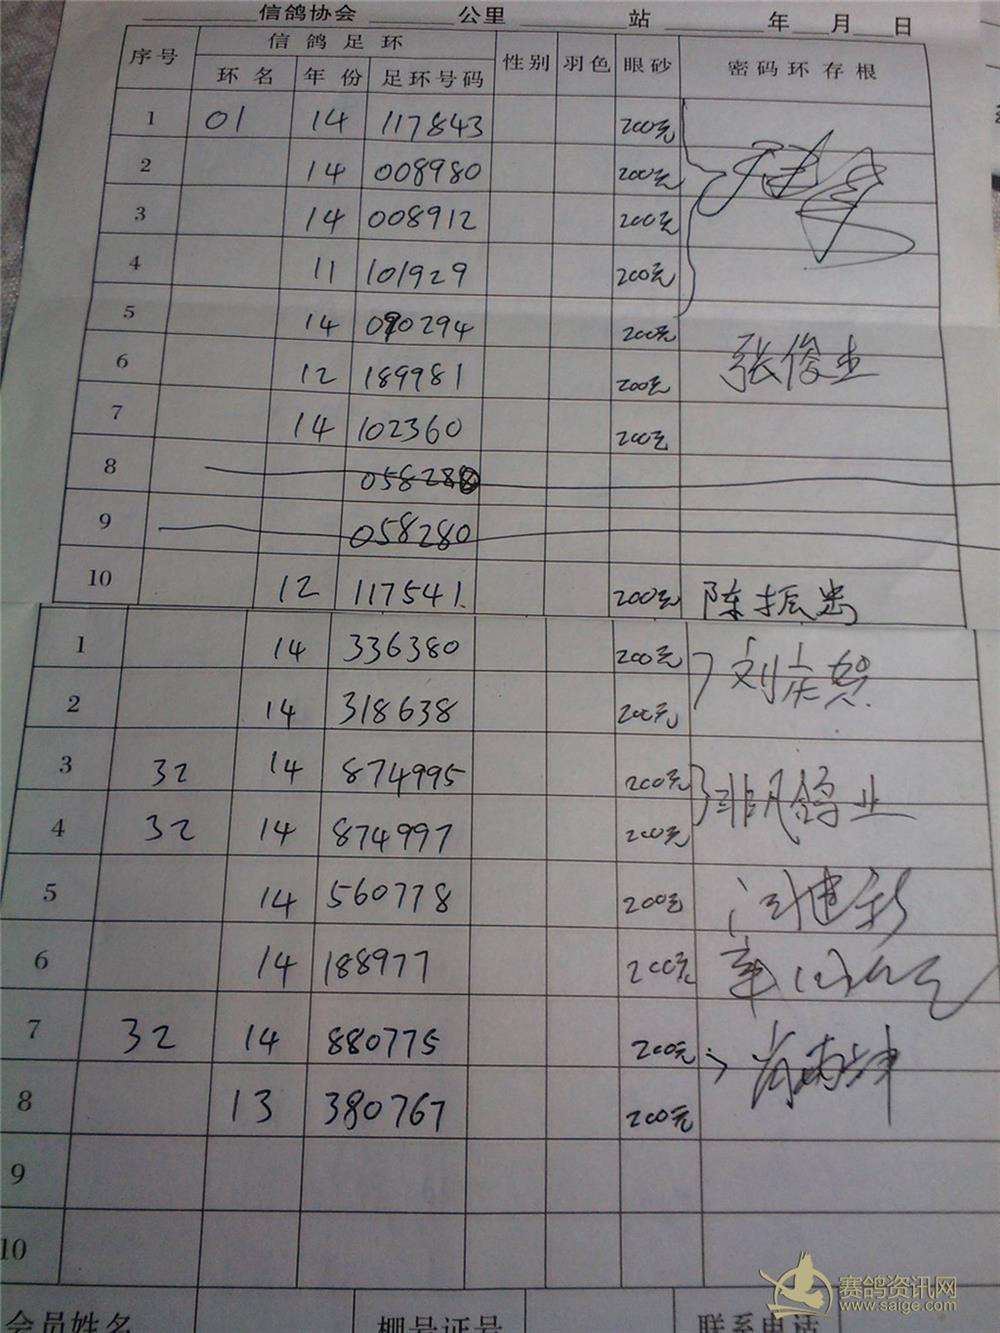 信鸽协会 公里 站 年 月 日
序号 信鸽足环 性别 羽色 眼砂 密码环存根
环名 年份 足环号码
1 01 14 117843 200元
2 14 008980 200元
3 14 008912 200元
4 11 101929 200元
5 14 090294 200元
6 12 189981 200元 张俊杰
7 14 102360 200元
8 058288
9 058280
10 12 117541 200元 陈振忠
1 14 336380 200元 刘庆贺
2 14 318638 200元
3 32 14 874995 200元 非凡鸽业
4 32 14 874997 200元
5 14 560778 200元
6 14 188977 200元
7 32 14 880775 200元
8 13 380767 200元
9
10
会员姓名 棚号证号 联系电话
赛鸽资讯网
www.saige.com